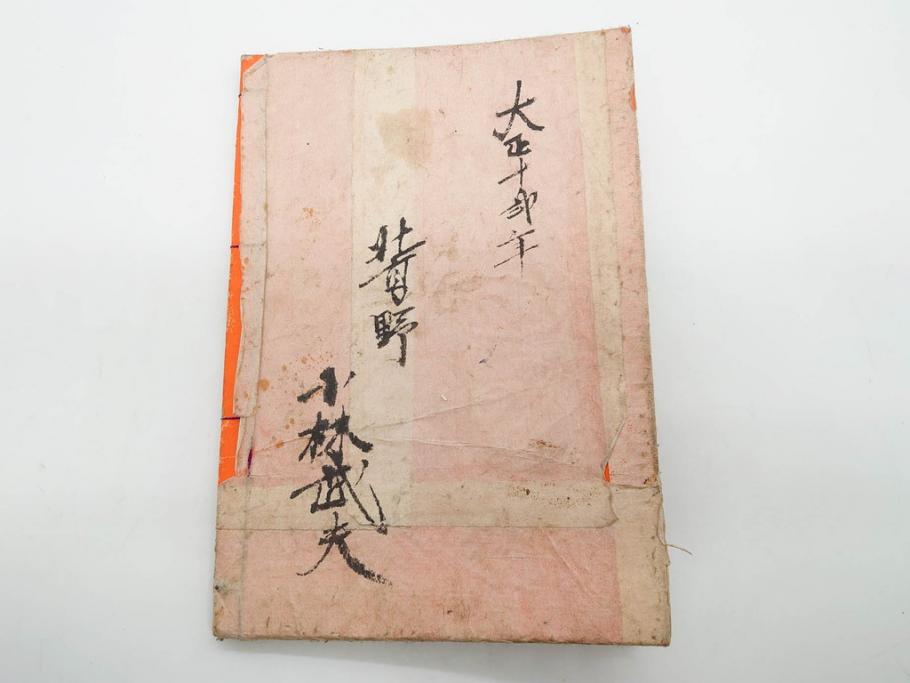 大正十弐年
野
小林武夫